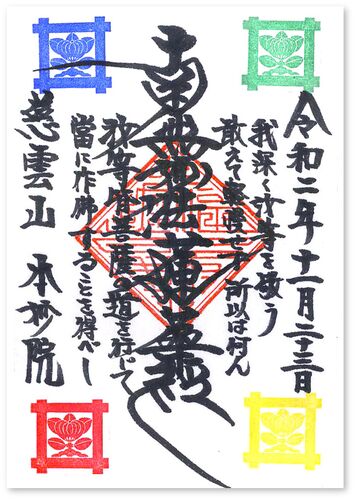 令和二年十一月二十三日
我深く汝等を敬う
敢えて軽慢せず 所以は何ん
南無妙法蓮華経
汝等皆菩薩の道を行じて
當に作佛することを得べし
慈雲山 本妙院